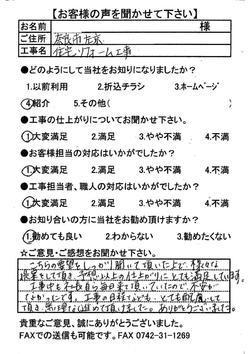 【お客様の声を聞かせて下さい】
お名前 様
ご住所 奈良市左京
工事名 住宅リフォーム工事
●どのようにして当社をお知りになりましたか?
1.以前利用 2.折込チラシ 3.ホームページ
④紹介 5.その他( )
●工事の仕上がりについてお聞かせ下さい。
①大変満足 2.満足 3.やや不満 4.不満
●お客様担当の対応はいかがでしたか?
①大変満足 2.満足 3.やや不満 4.不満
●工事担当者、職人の対応はいかがでしたか?
①大変満足 2.満足 3.やや不満 4.不満
●お知り合いの方に当社をお勧め頂けますか?
①勧めても良い 2.わからない 3.勧めたくない
☆ご意見・ご感想をお聞かせ下さい。
こちらの要望をしっかり聞いて頂いた上で、様々な
提案をして頂き、予想以上の仕上がりにとても満足しています。
工事中も社長自ら毎日来て頂いていたので、不安が
なかったです。工事の日程なども、とても配慮して
頂き、無理なく進めて頂けました。ありがとうございました。
貴重なご意見、誠にありがとうございました。
FAXでの送信も可能です。FAX 0742-31-1269